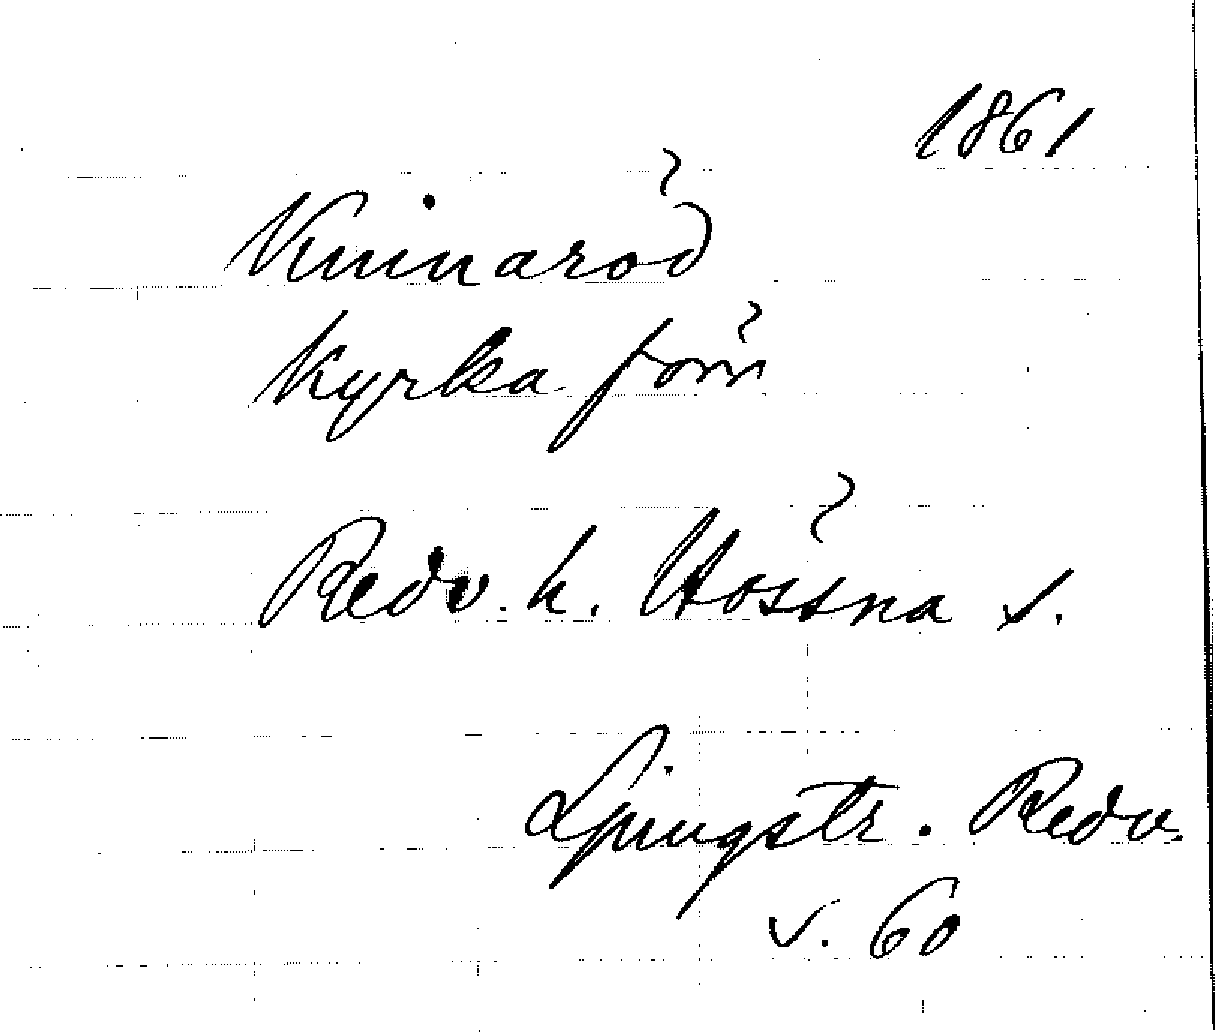 1861
Kvinaröd
Kyrka förr
Redv. h. Hössna s.
Ljungstr. Redv.
s. 60